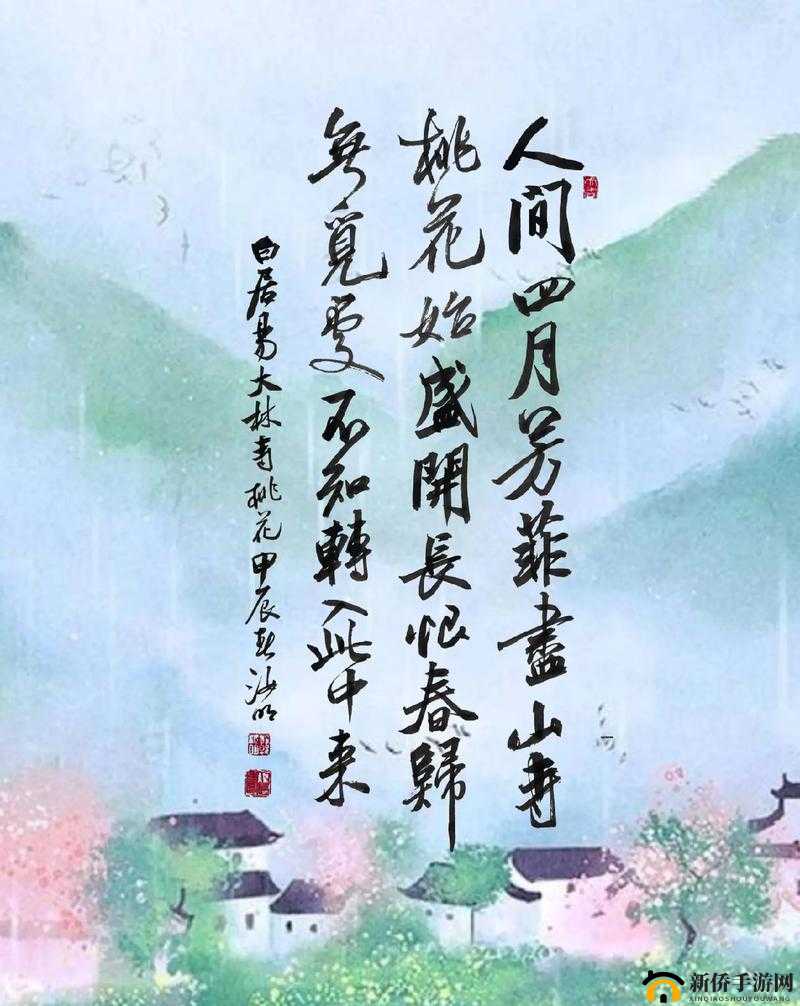 人間四月芳菲盡山寺
桃花始盛開長恨春歸
無覓處不知轉入此中来
白居易大林寺桃花甲辰春海明
新侨手游网
XINQIAOSHOUYOUWANG